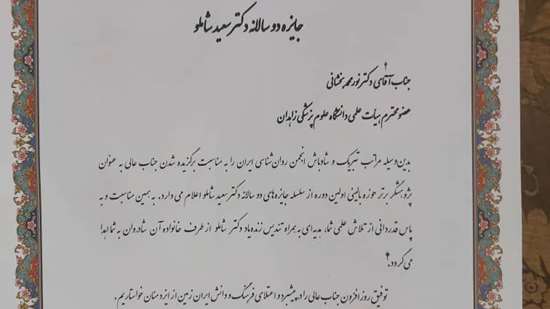 جایزه دو سالانه دکتر سعید شاملو
جناب آقای دکتر نور محمد بخشانی
عضو محترم هیات علمی دانشگاه علوم پزشکی زاهدان
بدین وسیله مراتب تبریک و شادباش انجمن روان شناسی ایران را به مناسبت برگزیده شدن جناب عالی به عنوان
پژوهشگر برتر حوزه بالینی اولین دوره از سلسله جایزه های دو سالانه دکتر سعید شاملو اعلام می دارد. به همین مناسبت و به
پاس قدردانی از تلاش علمی شما، هدیه ای به همراه تندیس زنده یاد دکتر شاملو از طرف خانواده آن شادروان به شما اهدا
می گردد.
توفیق روز افزون جناب عالی را در پیشبرد و اعتلای فرهنگ و دانش ایران زمین از ایزد منان خواستاریم.